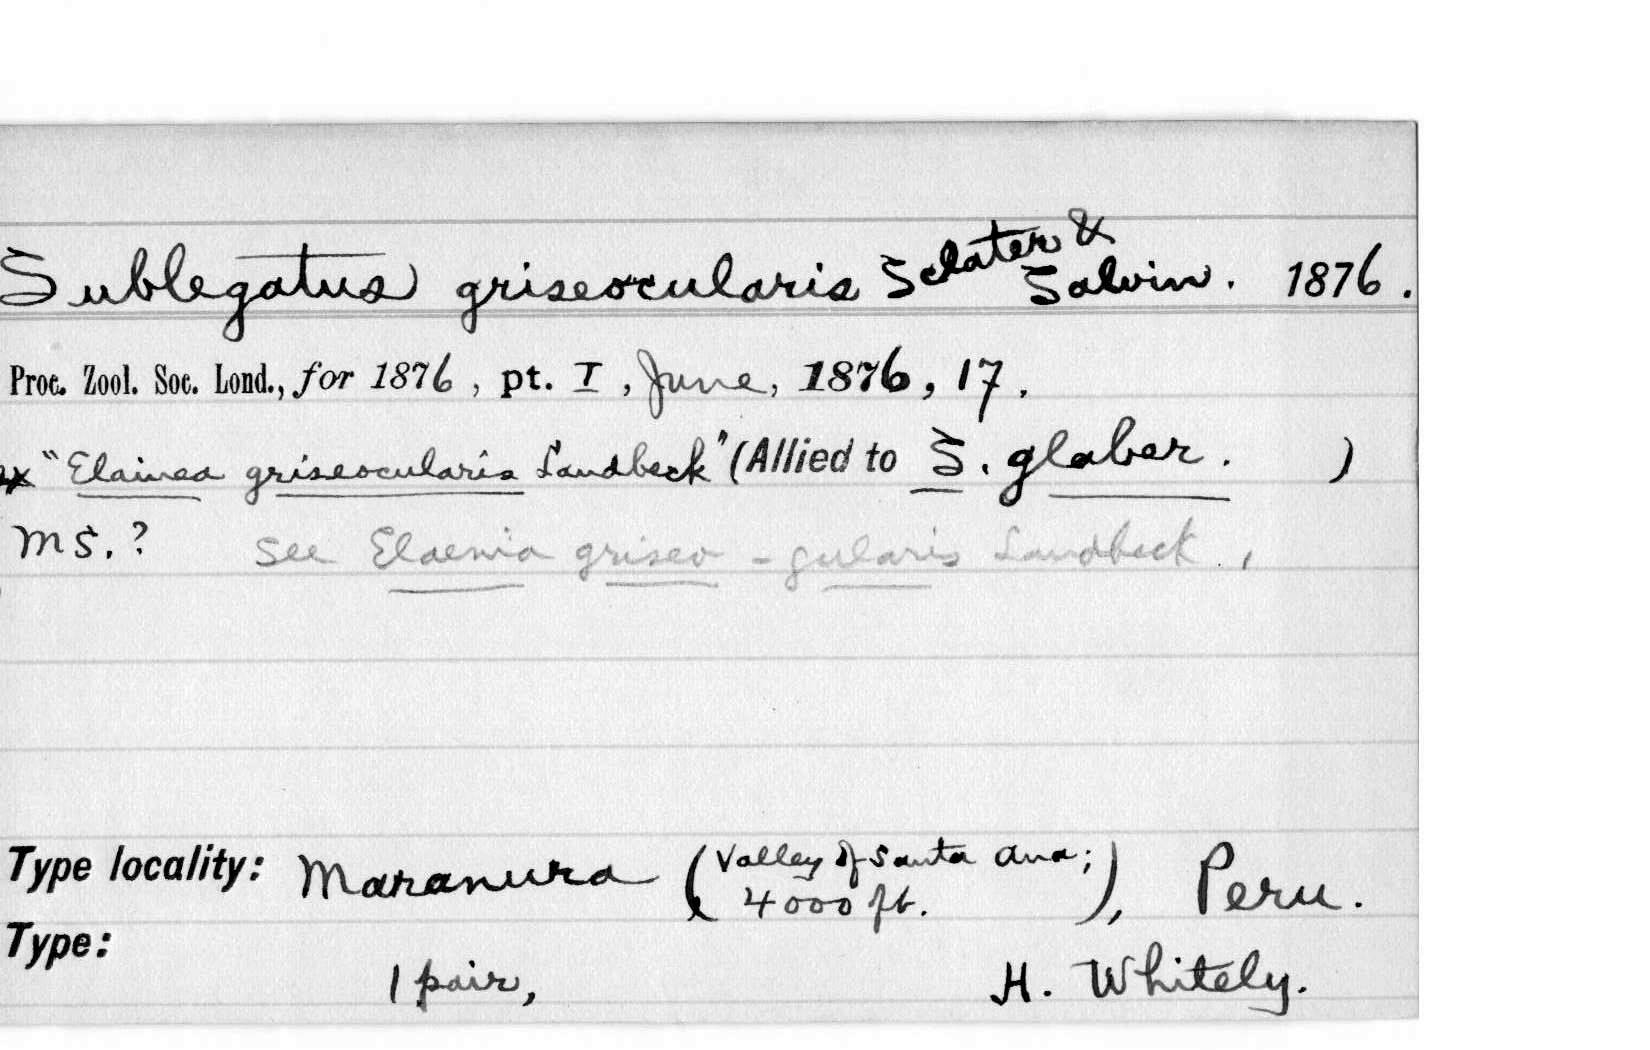 Sublegatus griseocularis Sclater & Salvin. 1876.
Proc. Zool. Soc. Lond., for 1876, pt. I, June, 1876, 17.
ex "Elainea griseocularis Landbeck" (Allied to S. glaber. )
MS.? see Elaenia griseo-gularis Landbeck.,
Type locality: Maranura (Valley of Santa Ana; 4000 ft. ), Peru.
Type:
1 pair, H. Whitely.